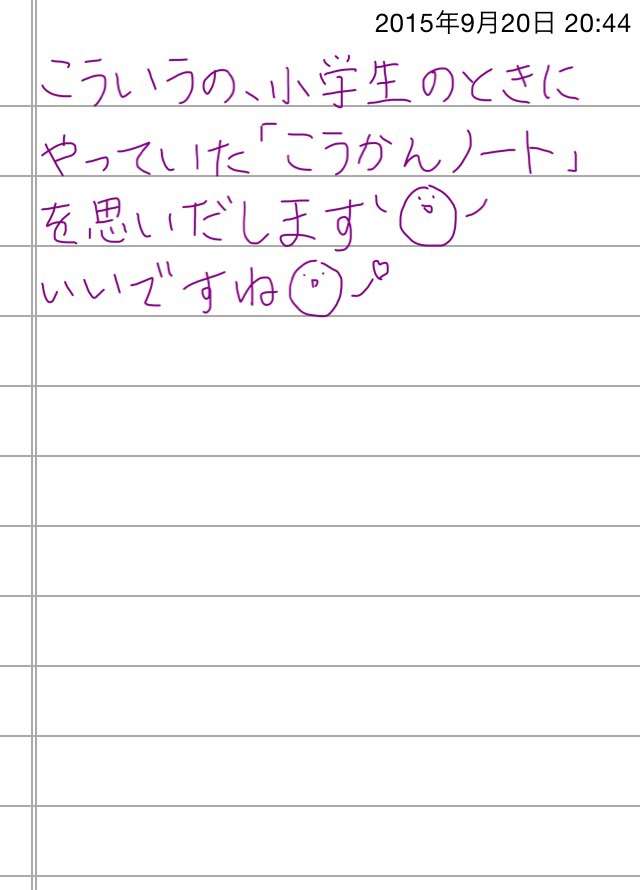 2015年9月20日 20:44
こういうの、小学生のときに
やっていた「こうかんノート」
を思いだします
いいですね